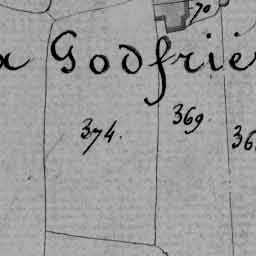 70
a Godfrie
369.
374.
36